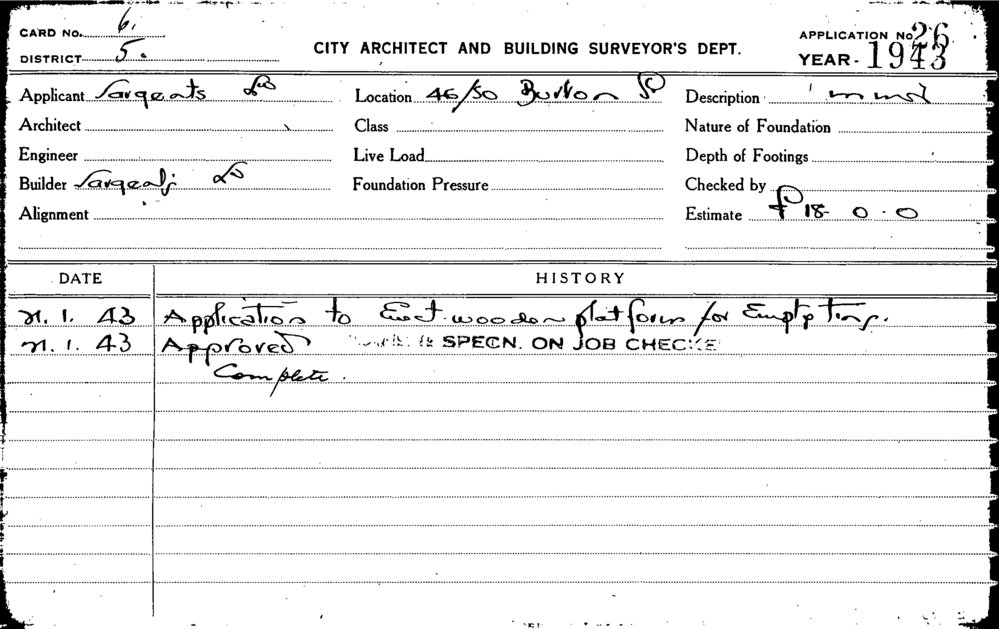 CARD No. 6.
DISTRICT 5.
CITY ARCHITECT AND BUILDING SURVEYOR'S DEPT.
APPLICATION No. 26
YEAR - 1943
Applicant Sargeants Ld
Location 46/50 Burton St
Description
Architect
Class
Nature of Foundation
Engineer
Live Load
Depth of Footings
Builder Sargeants Ld
Foundation Pressure
Checked by
Alignment
Estimate £18-0-0
DATE
HISTORY
1. 43 Application to Erect wooden platform for Empty Tins.
1. 43 Approved SPECN. ON JOB CHECKE
Complete.